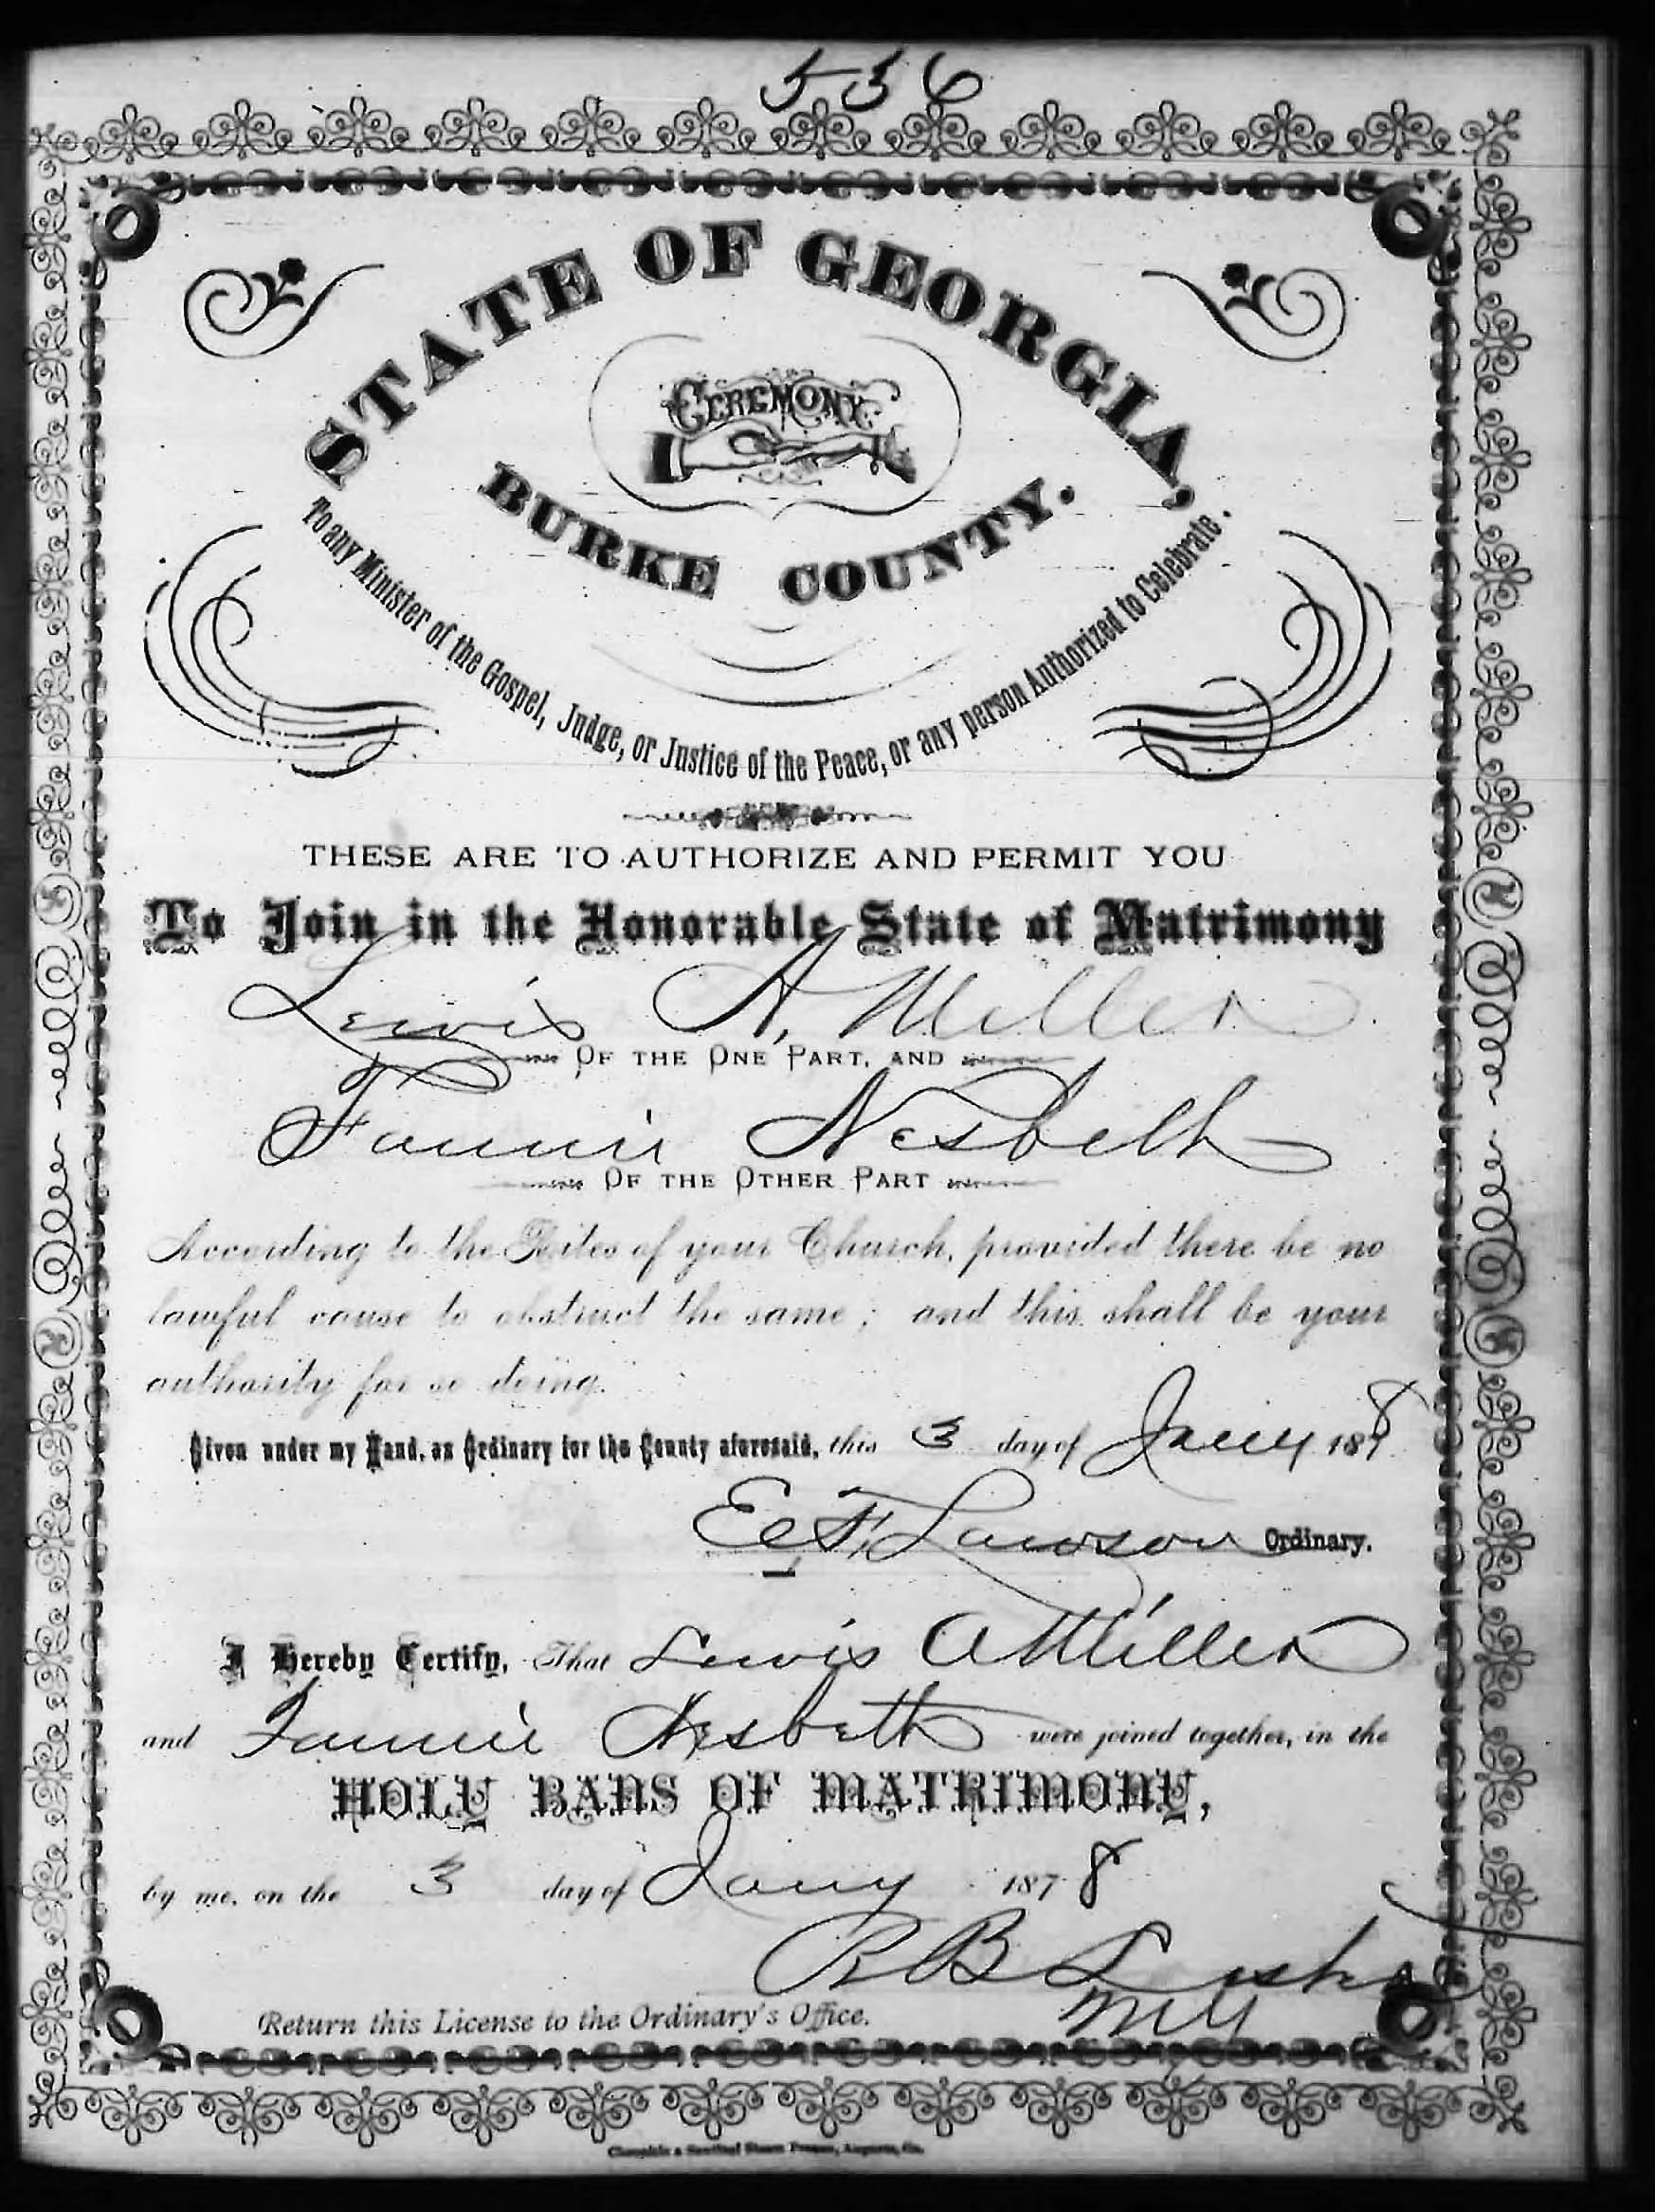 536
STATE OF GEORGIA,
CEREMONY
BURKE COUNTY.
To any Minister of the Gospel, Judge, or Justice of the Peace, or any person Authorized to Celebrate.
THESE ARE TO AUTHORIZE AND PERMIT YOU
To Join in the Honorable State of Matrimony
Lewis A. Miller
OF THE ONE PART, AND
Fannie Nesbeth
OF THE OTHER PART
According to the Rites of your Church, provided there be no
lawful cause to obstruct the same; and this shall be your
authority for so doing.
Given under my Hand, as Ordinary for the County aforesaid, this 3 day of Jany 1878
E. F. Lawson Ordinary.
I Hereby Certify, That Lewis A Miller
and Fannie Nesbeth were joined together, in the
HOLY BANS OF MATRIMONY,
by me, on the 3 day of Jany 1878
R B
Return this License to the Ordinary's Office.
Chronicle & Sentinel Steam Presses, Augusta, Ga.